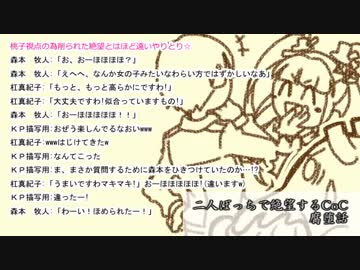 桃子視点の為削られた絶望とはほど遠いやりとり☆
森本　牧人:「お、おーほほほほ？」
森本　牧人:「えへへ、なんか女の子みたいなわらい方ではずかしいなあ」
杠真紀子:「もっと、もっと高らかにですわ!」
杠真紀子:「大丈夫ですわ!似合っていますもの!」
森本　牧人:「おーほほほほほ！！」
ＫＰ描写用:おぜう楽しんでるなおいwww
杠真紀子:wwwはじけてきたw
ＫＰ描写用:なんてこった
ＫＰ描写用:ま、まさか質問するために森本をひきつけていたのか…!?
杠真紀子:「うまいですわマキマキ!」おーほほほほほ!(違いますw)
ＫＰ描写用:違ったー!
森本　牧人:「わーい！ほめられたー！」
二人ぼっちで絶望するCoC
腐堕話